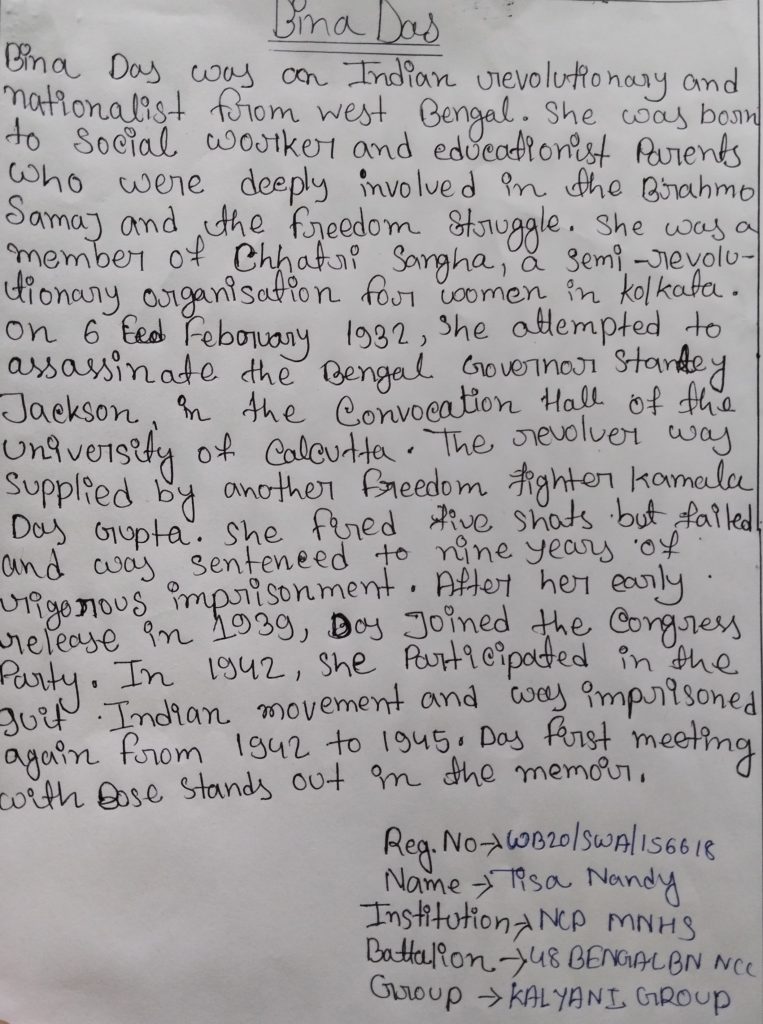 Bina Das
Bina Das was an Indian revolutionary and
nationalist from west Bengal. She was born
to Social worker and educationist Parents
who were deeply involved in the Brahmo
Samaj and the freedom Struggle. She was a
member of Chhatri Sangha, a semi-revolu-
tionary organisation for women in kolkata.
on 6 Feboruary 1932, She attempted to
assassinate the Bengal Governor Stanley
Jackson, in the Convocation Hall of the
University of Calcutta. The revolver was
Supplied by another freedom fighter Kamala
Das Gupta. She fired five shats but failed
and was senteneed to nine years of
rigorous imprisonment. After her early
release in 1939, Das Joined the Congress
Party. In 1942, She Participated in the
quit Indian movement and was imprisoned
again from 1942 to 1945. Das first meeting
with Bose Stands out in the memoir.
Reg. No→WB20/SWA/156618
Name → Tisa Nandy
Institution→ NCP MNHS
Battalion →48 BENGAL BN NCC
Group → KALYANI GROUP